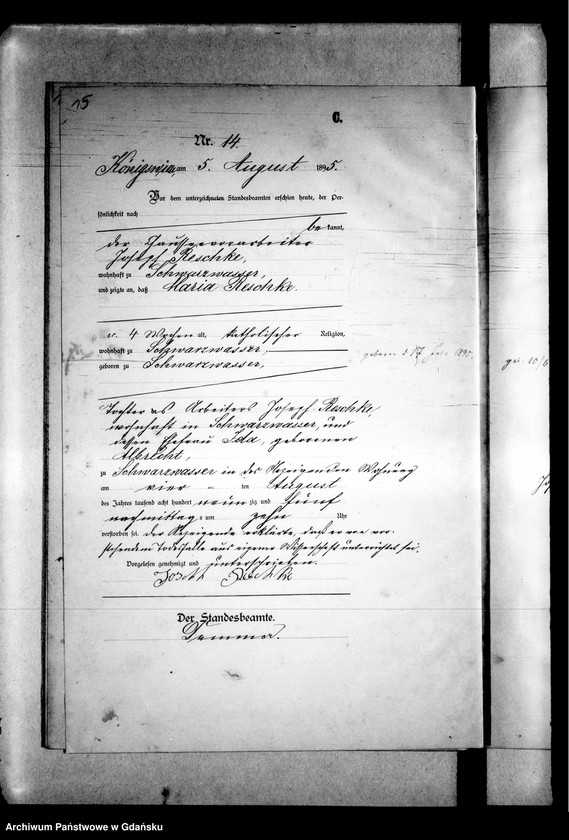 15
C.
Nr. 14.
Königswiese am 5. August 1895.
Vor dem unterzeichneten Standesbeamten erschien heute, der Per-
sönlichkeit nach
bekannt,
der Chausseevorarbeiter
Joseph Reschke,
wohnhaft zu Schwarzwasser,
und zeigte an, daß Maria Reschke
4 Wochen alt, katholischer Religion,
wohnhaft zu Schwarzwasser,
geboren zu Schwarzwasser,
geboren d. 17
Tochter des Arbeiters Joseph Reschke,
wohnhaft in Schwarzwasser, und
dessen Ehefrau Ida, geborenen
Albrecht,
zu Schwarzwasser in des Anzeigenden Wohnung
am vier ten August
des Jahres tausend acht hundert neunzig und fünf
nachmittags um zehn Uhr
verstorben sei. Der Anzeigende erklärte, daß er von vor-
stehendem Todesfalle aus eigener Wissenschaft unterrichtet sei.
Vorgelesen genehmigt und unterschrieben.
Joseph Reschke
Der Standesbeamte.
Archiwum Państwowe w Gdańsku